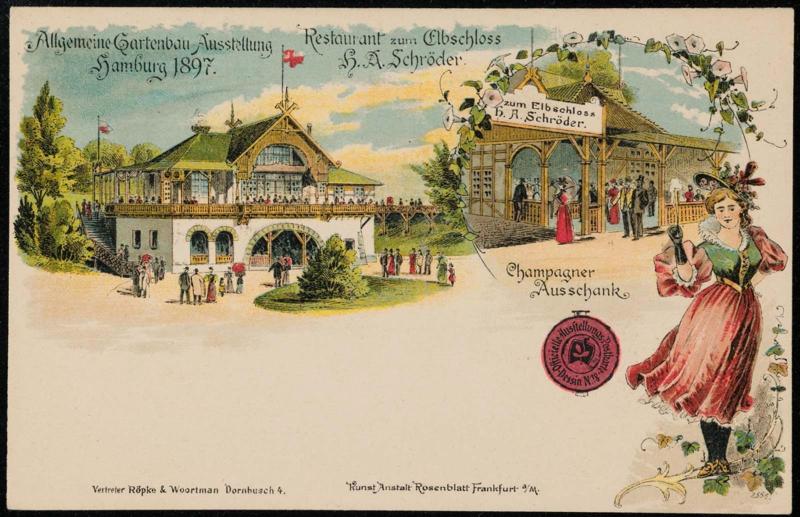 Allgemeine Gartenbau-Ausstellung
Hamburg 1897.
Restaurant zum Elbschloss
H. A. Schröder.
zum Elbschloss
H. A. Schröder.
Champagner
Ausschank
Officielle Ausstellungs-Postkarte
Dessin No. 18
Vertreter Röpke & Woortman Dornbusch 4.
Kunst Anstalt Rosenblatt Frankfurt a/M.